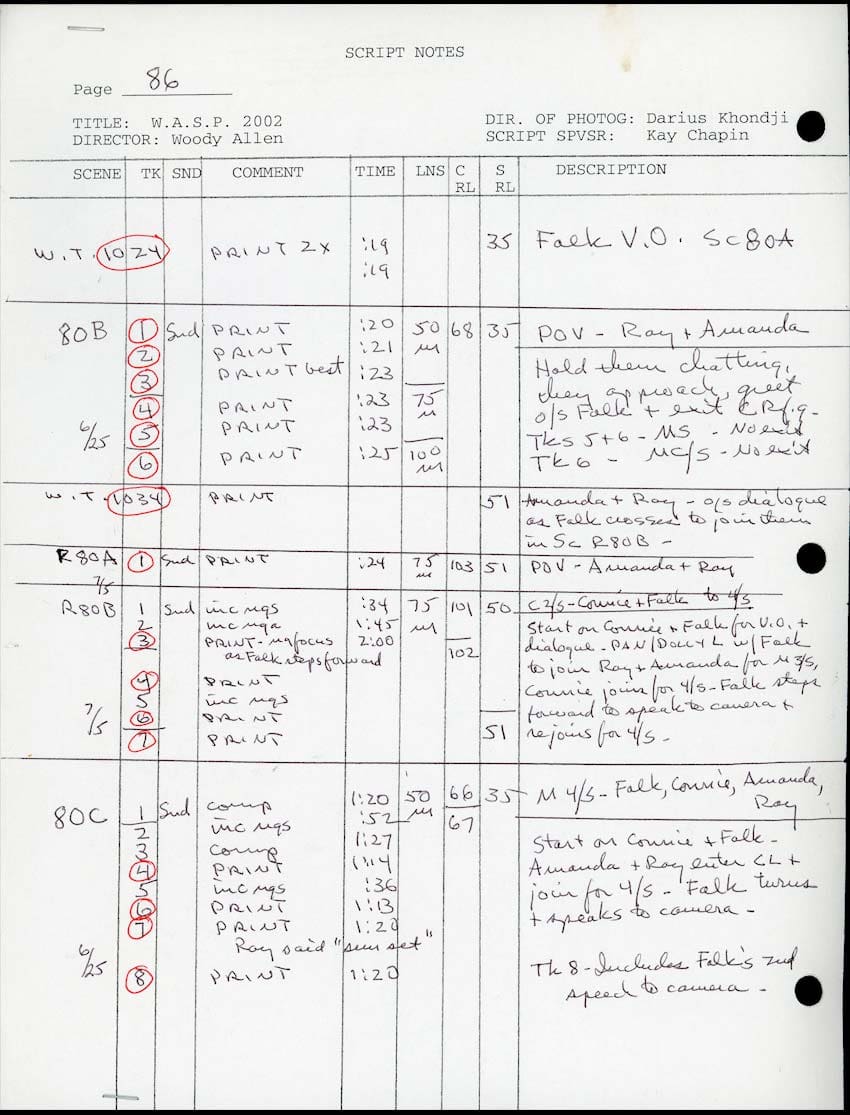 SCRIPT NOTES
Page 86
TITLE: W.A.S.P. 2002 DIR. OF PHOTOG: Darius Khondji
DIRECTOR: Woody Allen SCRIPT SPVSR: Kay Chapin
SCENE TK SND COMMENT TIME LNS C RL S RL DESCRIPTION
W.T. 1024 PRINT 2X :19 35 Falk V.O. Sc80A
:19
80B 1 Snd PRINT :20 50 68 35 POV - Ray + Amanda
2 PRINT :21 m Hold them chatting,
3 PRINT best :23 they approach, greet
4 PRINT :23 75 o/s Falk + exit CRf.g.
6/25 5 PRINT :23 m Tks 5+6 - MS - No exit
6 PRINT :25 100 m TK 6 - MC/S - No exit
W.T. 1034 PRINT 51 Amanda + Ray - o/s dialogue
as Falk crosses to join them
in Sc R80B -
R80A 1 Snd PRINT :24 75 m 103 51 POV - Amanda + Ray
7/5
R80B 1 Snd inc ngs :34 75 101 50 C2/s - Connie + Falk to 4/s
2 inc nga 1:45 m Start on Connie + Falk for V.O. +
3 PRINT - ng focus 2:00 102 dialogue - PAN/DOLLY L w/ Falk
as Falk steps forward to join Ray + Amanda for M 3/s,
4 PRINT Connie joins for 4/s - Falk steps
5 inc ngs forward to speak to camera +
7/5 6 PRINT rejoins for 4/s -
7 PRINT 51
80C 1 Snd comp 1:20 50 66 35 M 4/s - Falk, Connie, Amanda,
Ray
2 inc ngs :52 m 67
3 comp 1:27 Start on Connie + Falk -
4 PRINT 1:14 Amanda + Ray enter CL +
5 inc ngs :36 join for 4/s - Falk turns
6 PRINT 1:13 + speaks to camera -
7 PRINT 1:20
Ray said "sun set"
6/25 8 PRINT 1:20 Tk 8 - Includes Falk's 2nd
speed to camera -